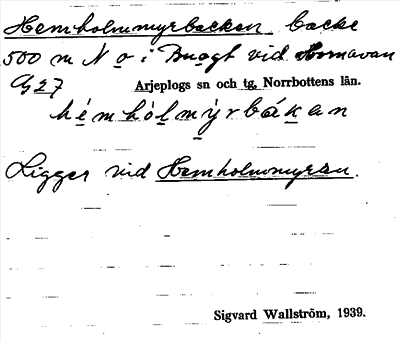 Hemholmmyrbacken backe
500 m N o : Buogt vid Hornavan
G 27 Arjeplogs sn och tg, Norrbottens län.
hémhòlmỳrbákan
Ligger vid Hemholmmyran.
Sigvard Wallström, 1939.